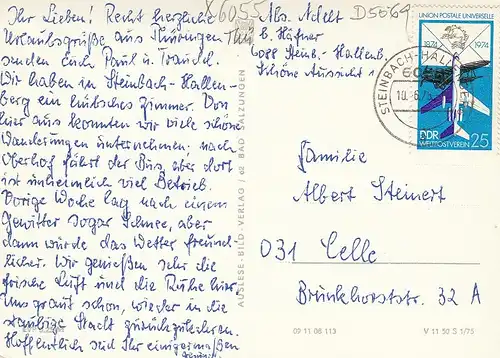 Ihr Lieben! Recht herzliche
Urlaubsgrüße aus Thüringen
senden Euch Paul u. Traudl.
Wir haben in Steinbach-Hallen-
berg ein hübsches Zimmer. Von
hier aus konnten wir viele schöne
Wanderungen unternehmen. nach
Oberhof fährt der Bus, aber dort
ist unheimlich viel Betrieb.
Vorige Woche lag nach einem
Gewitter sogar Schnee, aber
dann wurde das Wetter freund-
licher. Wir genießen sehr die
frische Luft und die Ruhe hier.
Uns graut schon, wieder in die
staubige Stadt zurückzukehren.
Hoffentlich seid Ihr einigermaßen
X6055
Thür
AUSLESE-BILD-VERLAG / 62 BAD SALZUNGEN
Abs. Adelt
D5069
b. Häfner
6088 Steinb.-Hallenb.
Schöne Aussicht 1
STEINBACH-HALLEN
UNION POSTALE UNIVERSELLE
1874 1974
DDR
WELTPOSTVEREIN 25
Familie
Albert Steinert
D31 Celle
Brunkhorststr. 32 A
09 11 06 113
V 11 50 S 1/75